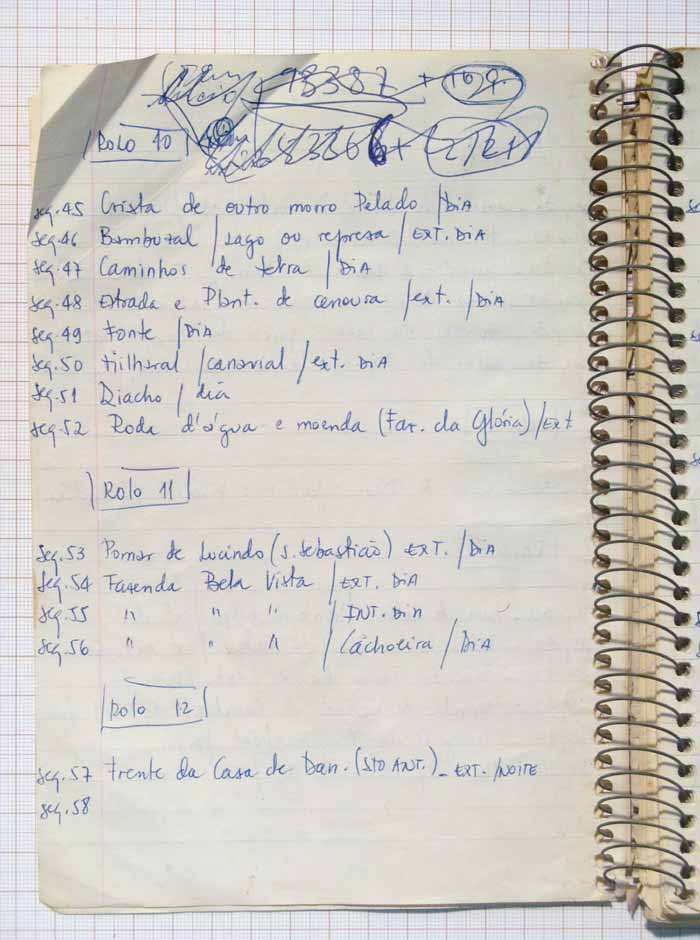 98387 +
ROLO 10
Seq.45 Crista de outro morro Pelado / DIA
Seq.46 Bambuzal / Lago ou represa / EXT. DIA
Seq.47 Caminhos de terra / DIA
Seq.48 Estrada e Plant. de cenoura / ext. / DIA
Seq.49 Fonte / DIA
Seq.50 Milharal / canavial / ext. DIA
Seq.51 Riacho / dia
Seq.52 Roda d'água e moenda (Faz. da Glória) / Ext.
ROLO 11
Seq.53 Pomar de Lucindo (S. Sebastião) EXT. / DIA
Seq.54 Fazenda Bela Vista / EXT. DIA
Seq.55 " " " / INT. DIA
Seq.56 " " " / Cachoeira / DIA
ROLO 12
Seq.57 Frente da Casa de Dan. (STO ANT.) - EXT. / NOITE
Seq.58